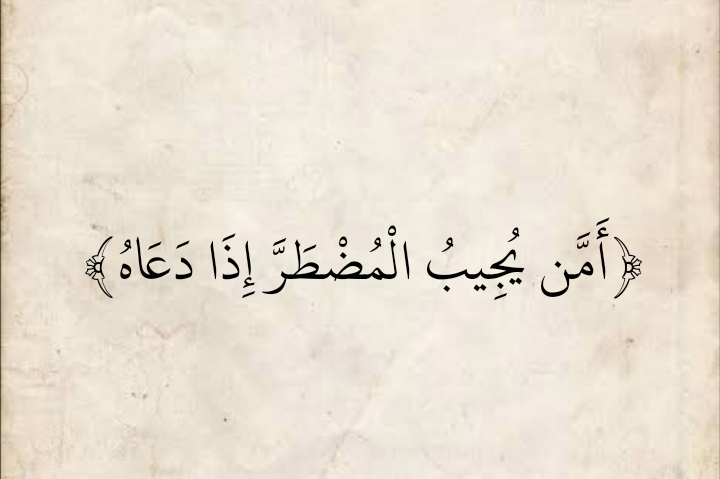 ﴿أَمَّن يُجِيبُ الْمُضْطَرَّ إِذَا دَعَاهُ﴾